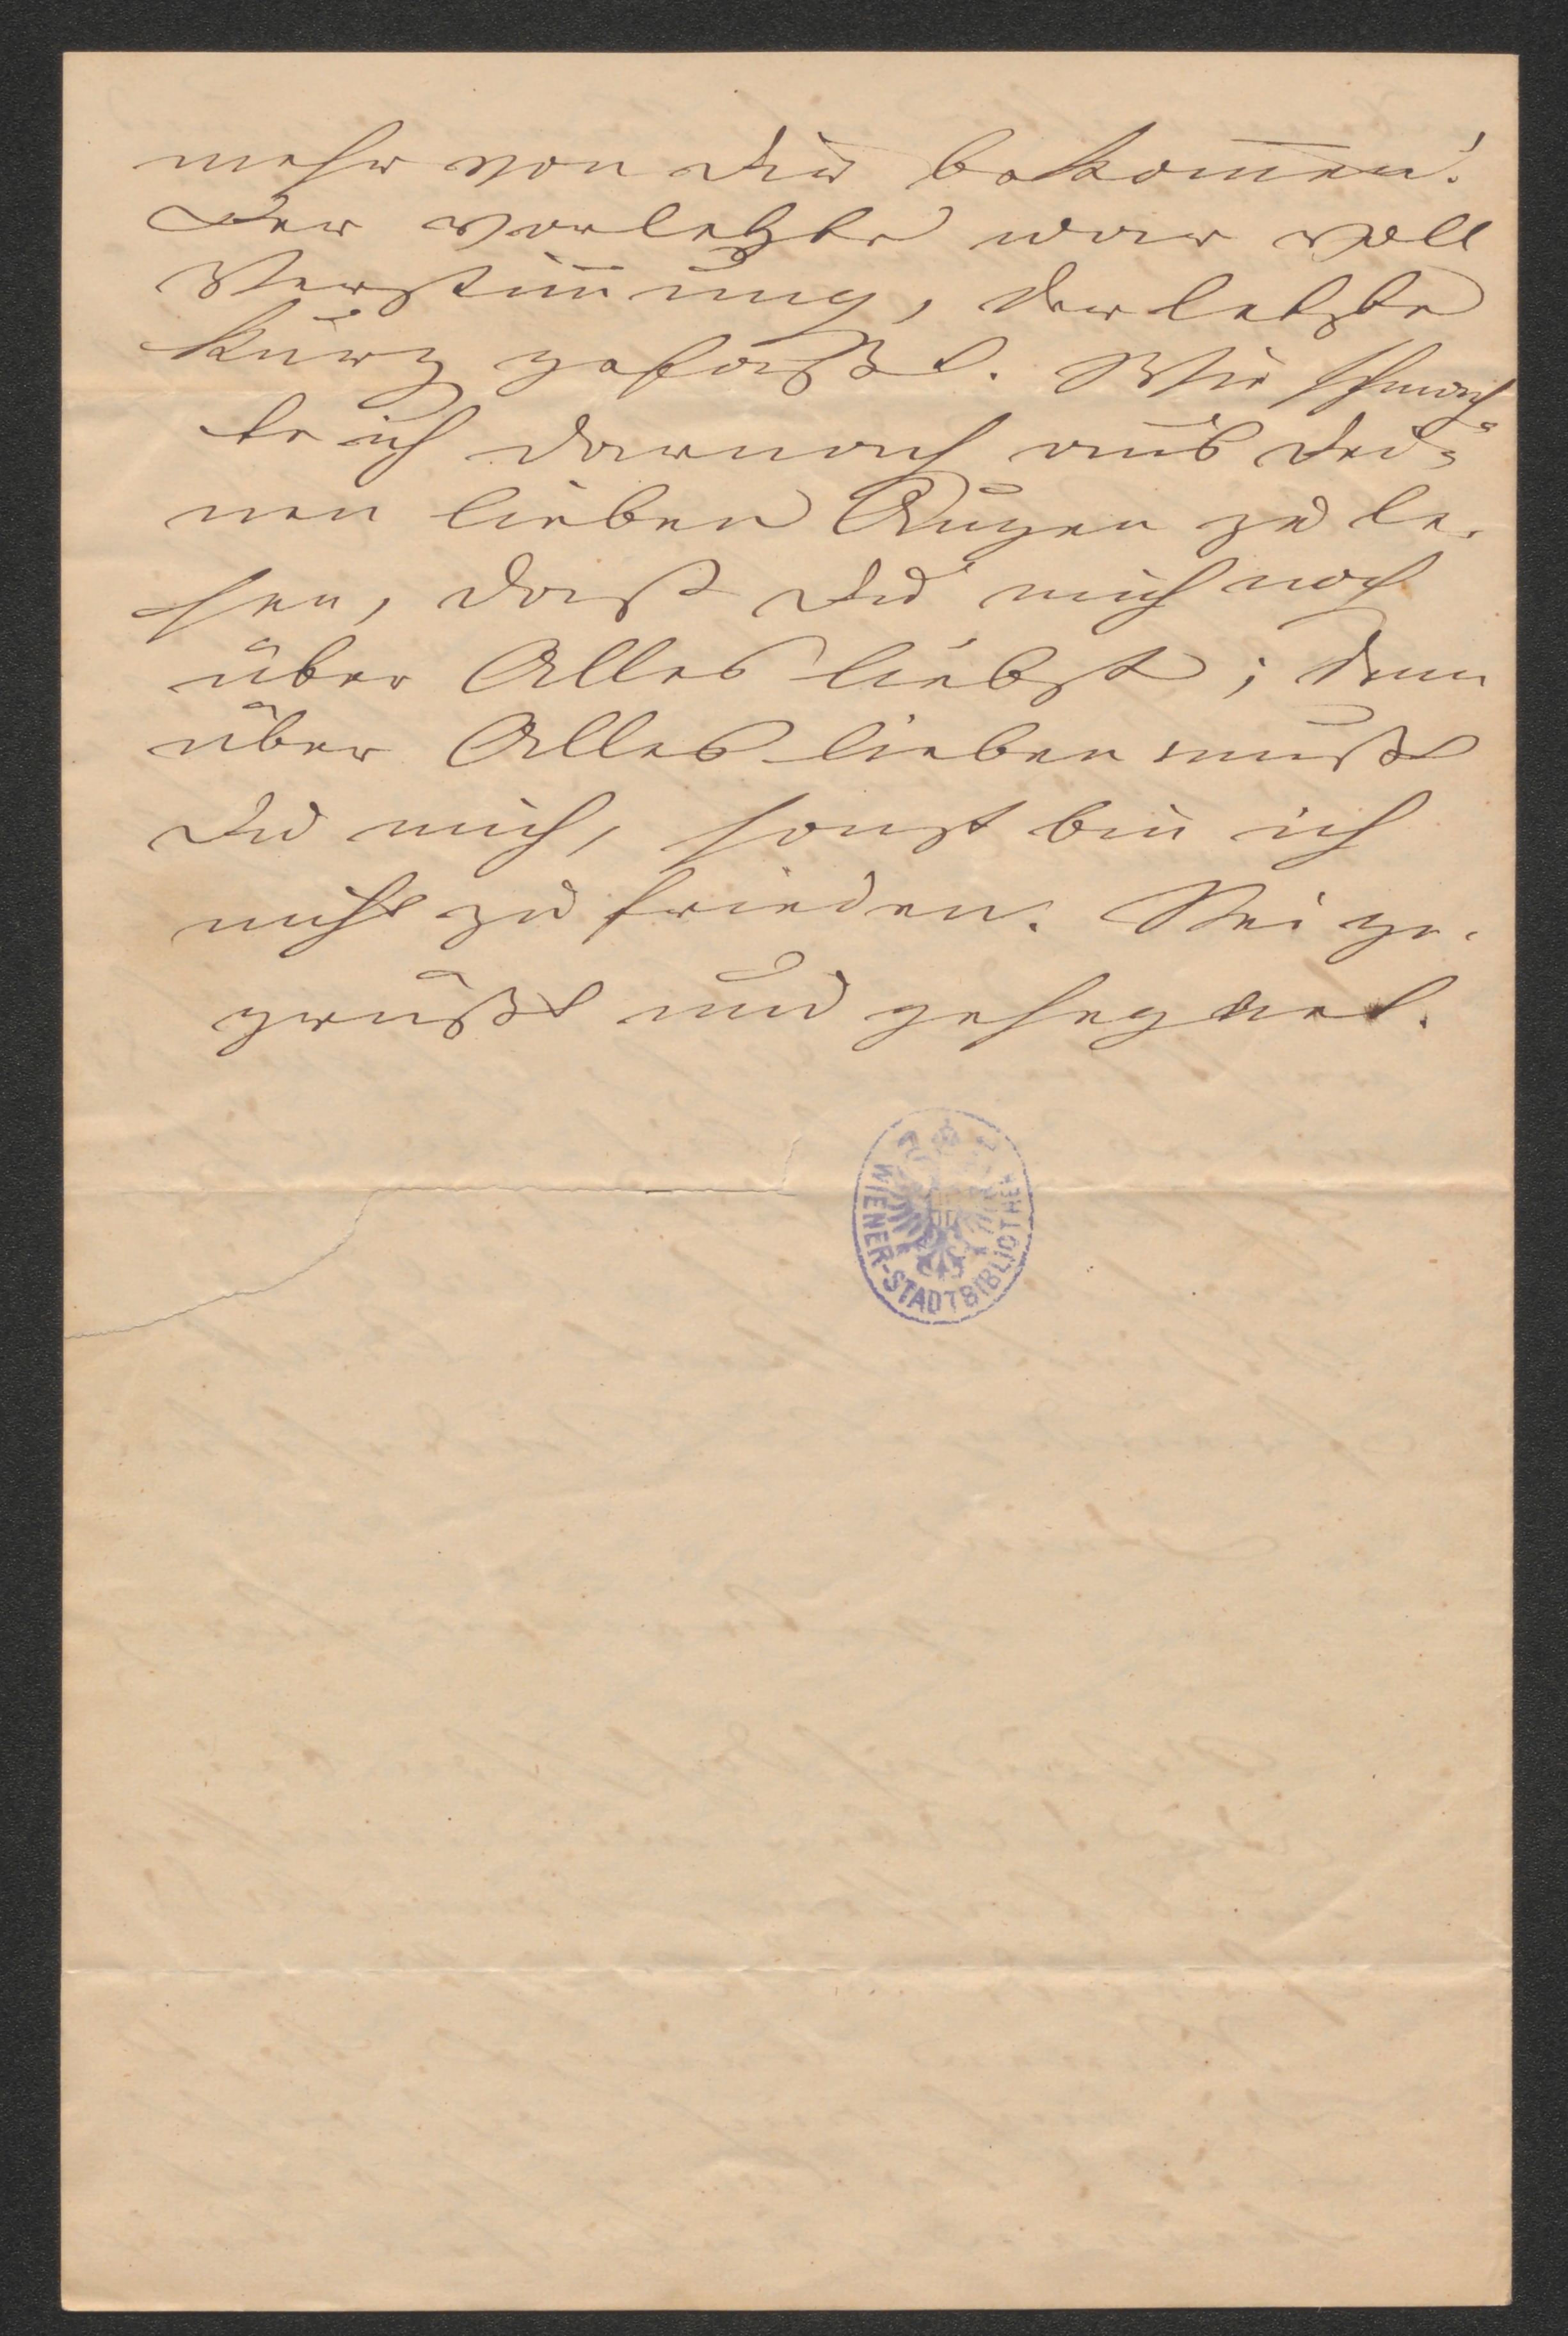 mehr von dir bekom̅en!
Der vorletzte war voll
Verstim̅ung, der letzte
kurz gefaßt. Wie schmach-
te ich darnach aus dei-
nen lieben Augen zu le-
sen, daß du mich noch
über Alles liebst; denn
über Alles lieben mußt
du mich, sonst bin ich
nicht zufrieden. Sei ge-
grüßt und gesegnet.
WIENER-STADTBIBLIOTHEK